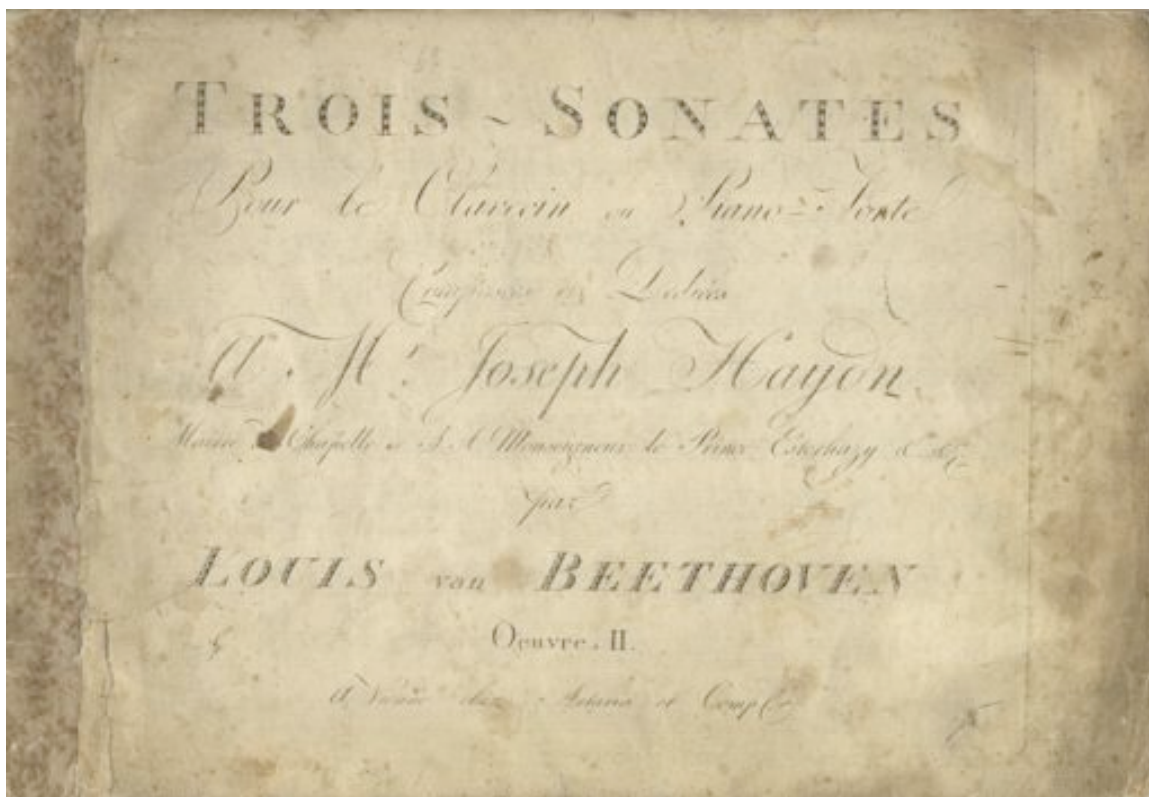 TROIS ~ SONATES
Pour le Clavecin ou Piano-Forte
Composées et Dediées
A Mr. Joseph Haydn
Maitre Chapelle de S. A. Monseigneur le Prince Esterhazy &c. &c.
par
LOUIS van BEETHOVEN
Oeuvre. II.
A Vienne chez Artaria et Comp